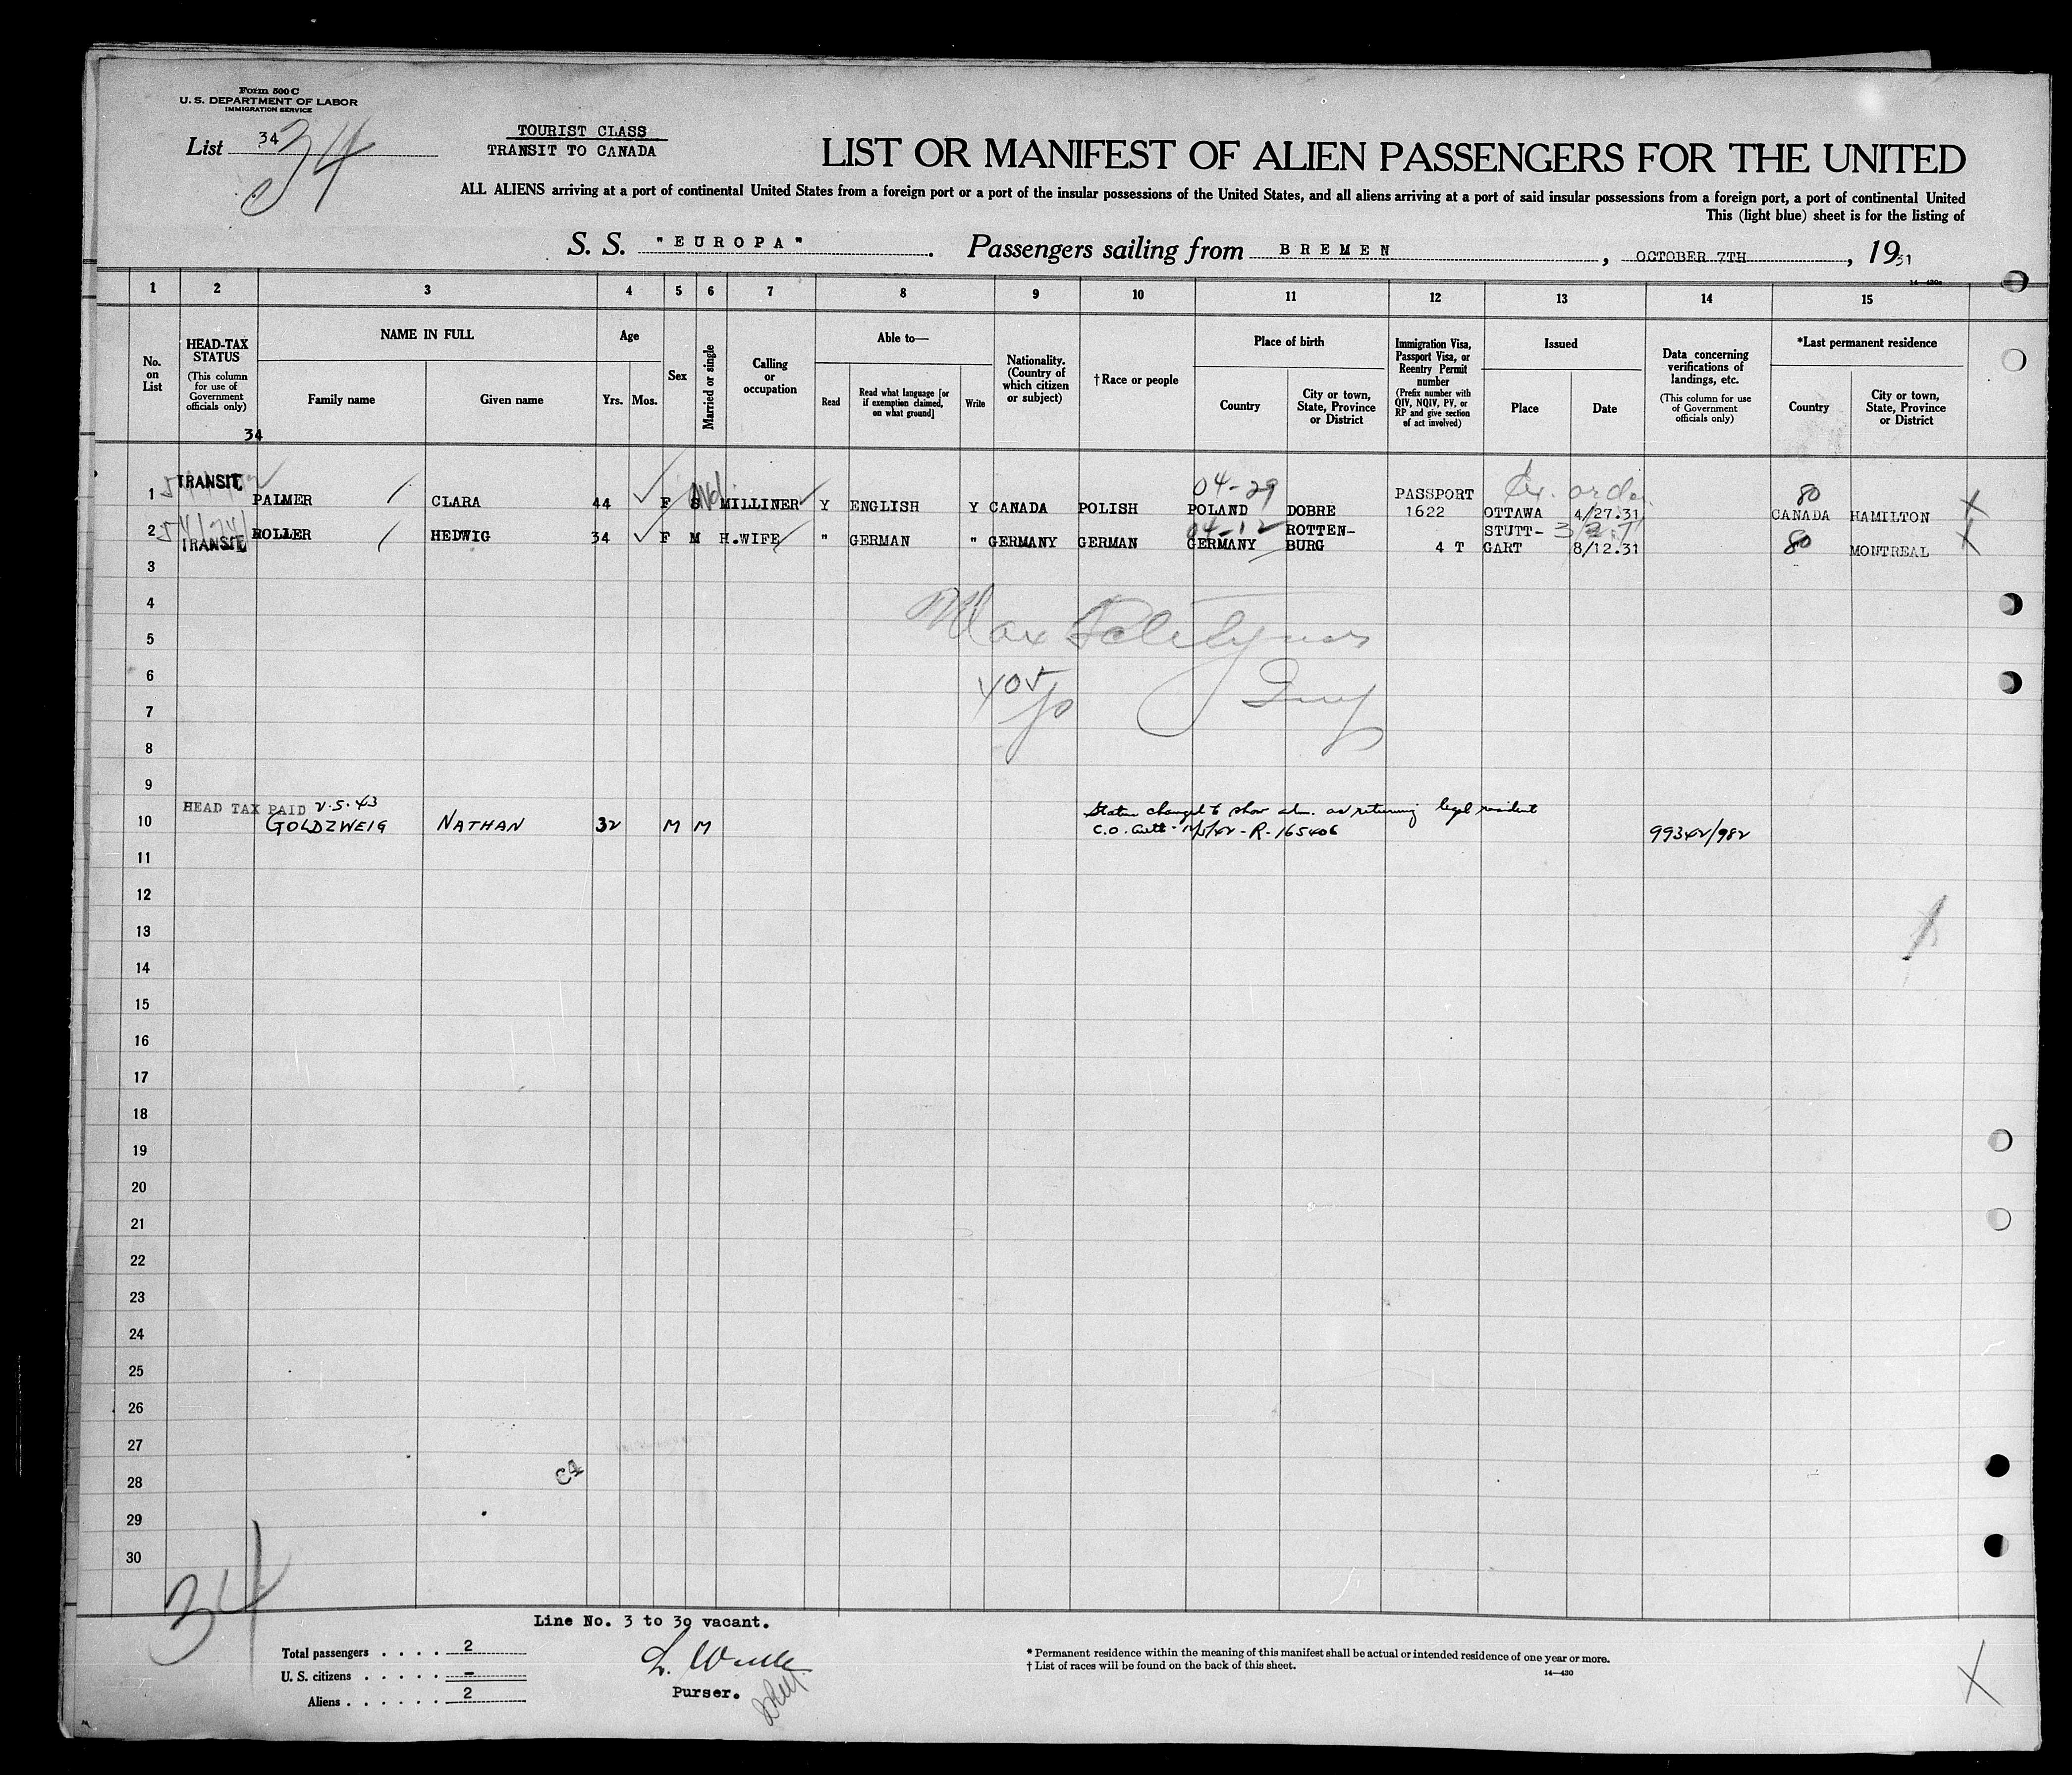 Form 500 C
U. S. DEPARTMENT OF LABOR
IMMIGRATION SERVICE
List 34 34
TOURIST CLASS
TRANSIT TO CANADA
LIST OR MANIFEST OF ALIEN PASSENGERS FOR THE UNITED
ALL ALIENS arriving at a port of continental United States from a foreign port or a port of the insular possessions of the United States, and all aliens arriving at a port of said insular possessions from a foreign port, a port of continental United
This (light blue) sheet is for the listing of
S. S. "EUROPA". Passengers sailing from BREMEN, OCTOBER 7TH, 1931
14—430c
1 2 3 4 5 6 7 8 9 10 11 12 13 14 15
No. on List
HEAD-TAX STATUS
(This column for use of Government officials only)
34
NAME IN FULL
Family name
Given name
Age
Yrs. Mos.
Sex
Married or single
Calling or occupation
Able to—
Read
Read what language [or if exemption claimed, on what ground]
Write
Nationality. (Country of which citizen or subject)
†Race or people
Place of birth
Country
City or town, State, Province or District
Immigration Visa, Passport Visa, or Reentry Permit number
(Prefix number with QIV, NQIV, PV, or RP and give section of act involved)
Issued
Place
Date
Data concerning verifications of landings, etc.
(This column for use of Government officials only)
*Last permanent residence
Country
City or town, State, Province or District
04-29 PASSPORT 80
1 TRANSIT PALMER CLARA 44 F S MILLINER Y ENGLISH Y CANADA POLISH POLAND DOBRE 1622 OTTAWA 4/27.31 CANADA HAMILTON
04-12 ROTTEN- STUTT- 80
2 TRANSIT ROLLER HEDWIG 34 F M H.WIFE " GERMAN " GERMANY GERMAN GERMANY BURG 4 T GART 8/12.31 MONTREAL
3
4
5
6
7
8
9
HEAD TAX PAID 2-5-43
10 GOLDZWEIG NATHAN 32 M M
Status changed to show adm. as returning legal resident
R-165406
99342/982
11
12
13
14
15
16
17
18
19
20
21
22
23
24
25
26
27
28
29
30
34
Line No. 3 to 30 vacant.
Total passengers . . . . 2
U. S. citizens . . . . . —
Aliens . . . . . . 2
Purser.
* Permanent residence within the meaning of this manifest shall be actual or intended residence of one year or more.
† List of races will be found on the back of this sheet.
14—430